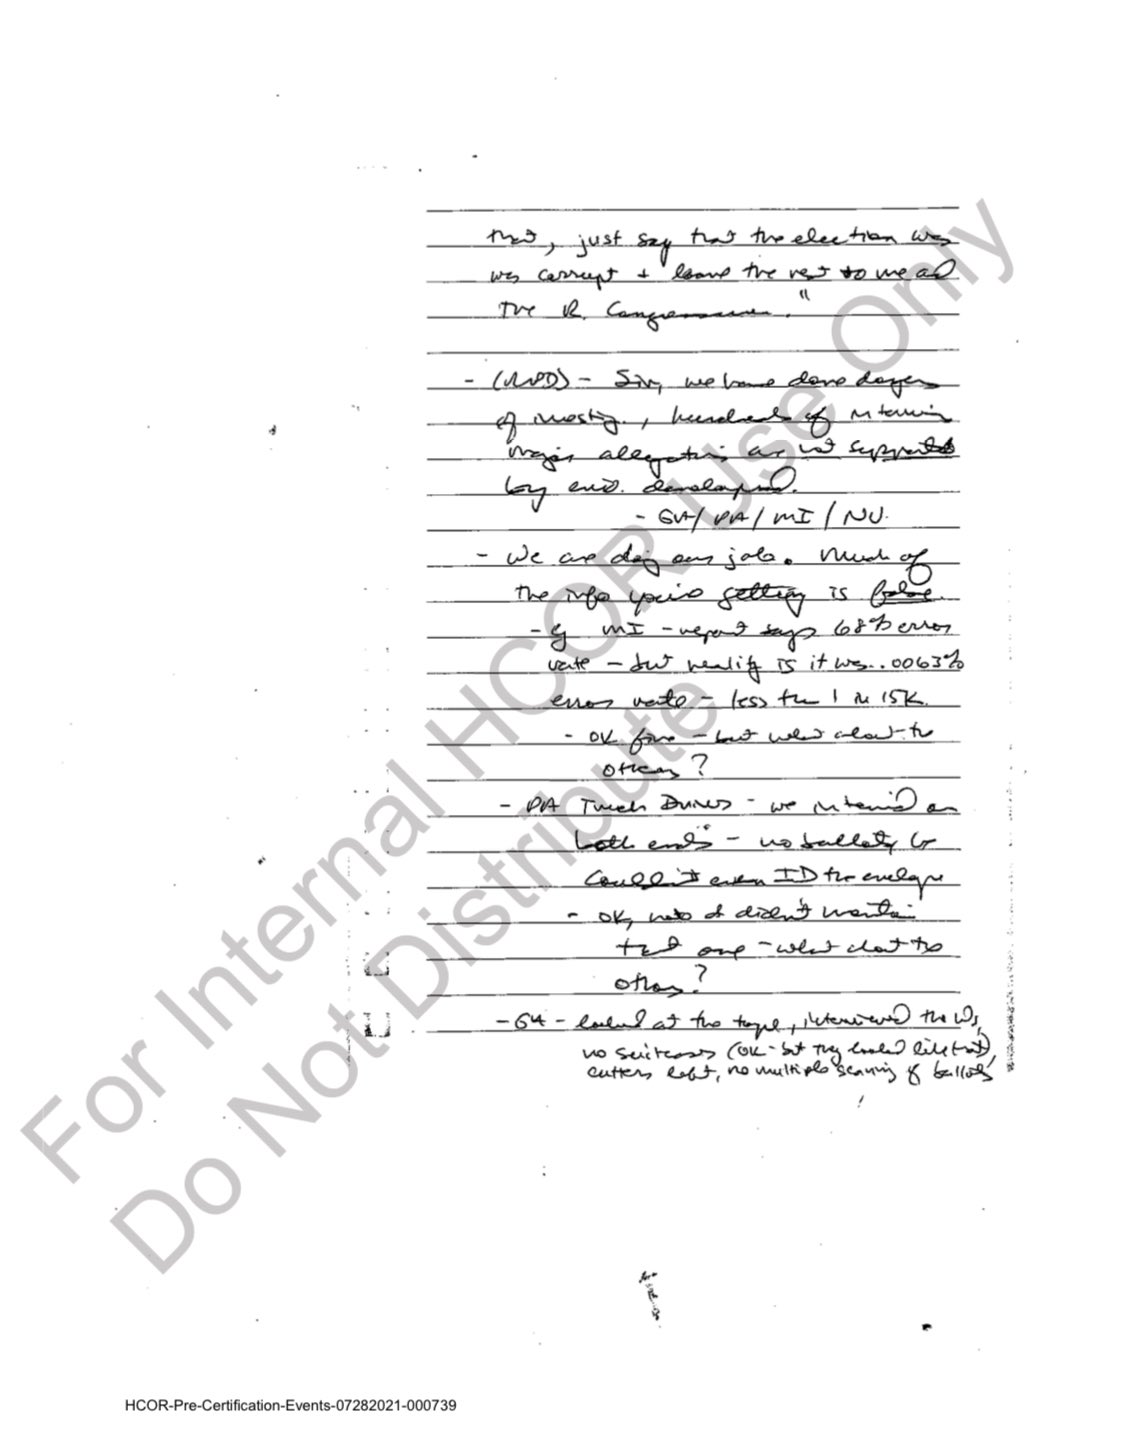 that, just say that the election was
was corrupt + leave the rest to me and
the R. Congressmen."
- (RPD) - Sir, we have done dozens
of investig., hundreds of interviews
major allegations are not supported
by evid. developed.
- GA/PA/MI/NV.
- We are doing our job. Much of
the info you're getting is false.
- eg MI - report says 68% error
rate - but reality is it was .0063%
error rate - less than 1 in 15K.
- OK fine - but what about the
others?
- PA Truck Driver - we interview'd on
both ends - no ballots or
couldn't even ID the envelope
- OK, 
that one - what about the
others?
- GA - looked at the tape, interviewed the Ws,
no suitcases (OK - but they looked like that),
 no multiple scanning of ballots
For Internal HCOR Use Only
Do Not Distribute
HCOR-Pre-Certification-Events-07282021-000739